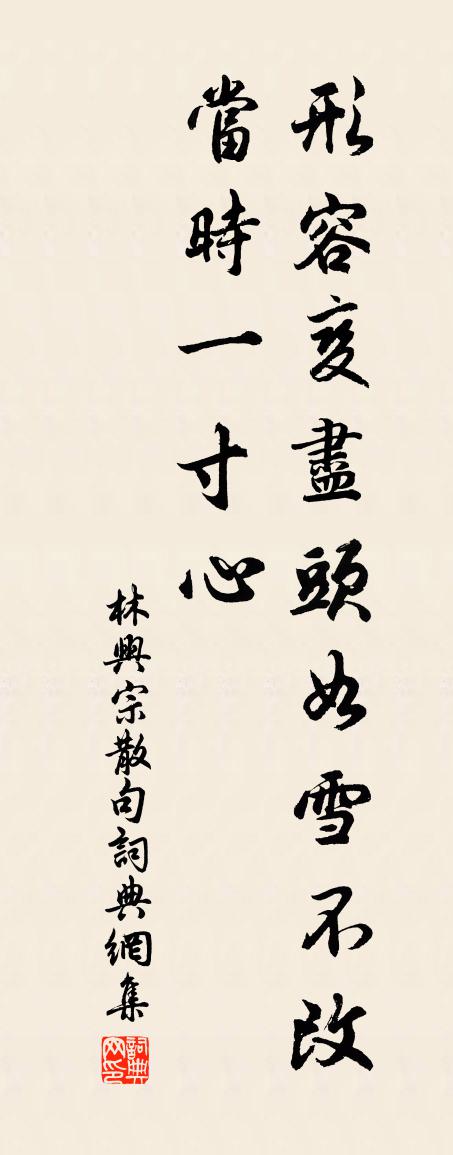 形容變盡頭如雪不改
當時一寸心
林興宗散句詞典網集
詞典网印